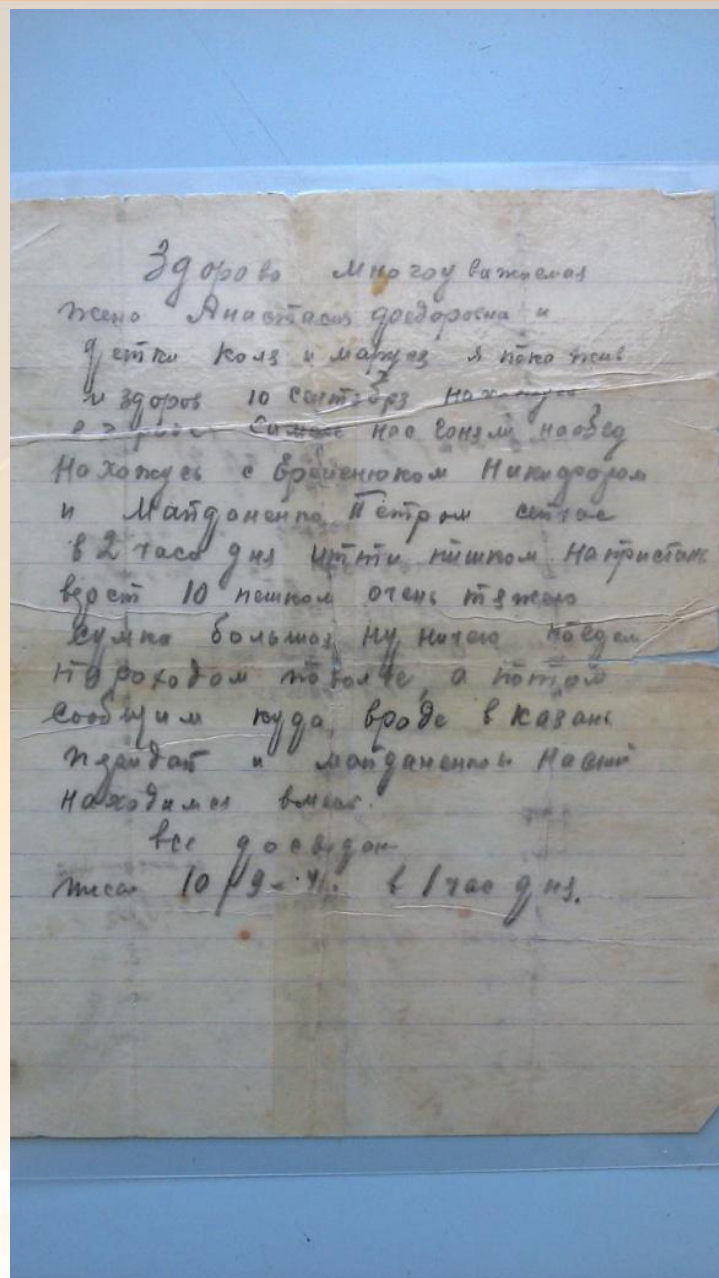 Здорово многоуважаемая
жена Анастасия доедоровна и
детки Коля и Маруся я пока жив
и здоров 10 сентебря нахожусь
нас гоняли наобед
Нахожусь с Никифором
и Майданенко Петром сейчас
в 2 часа дня итти пишком напристань
верст 10 пешком очень тяжело
сумка большая ну ничего поедем
пароходом поволге, а потом
сообщим куда, вроде в казань
и майданенко
находимся вместе.
все досвидан
писал 10/9-41. в 1 час дня.